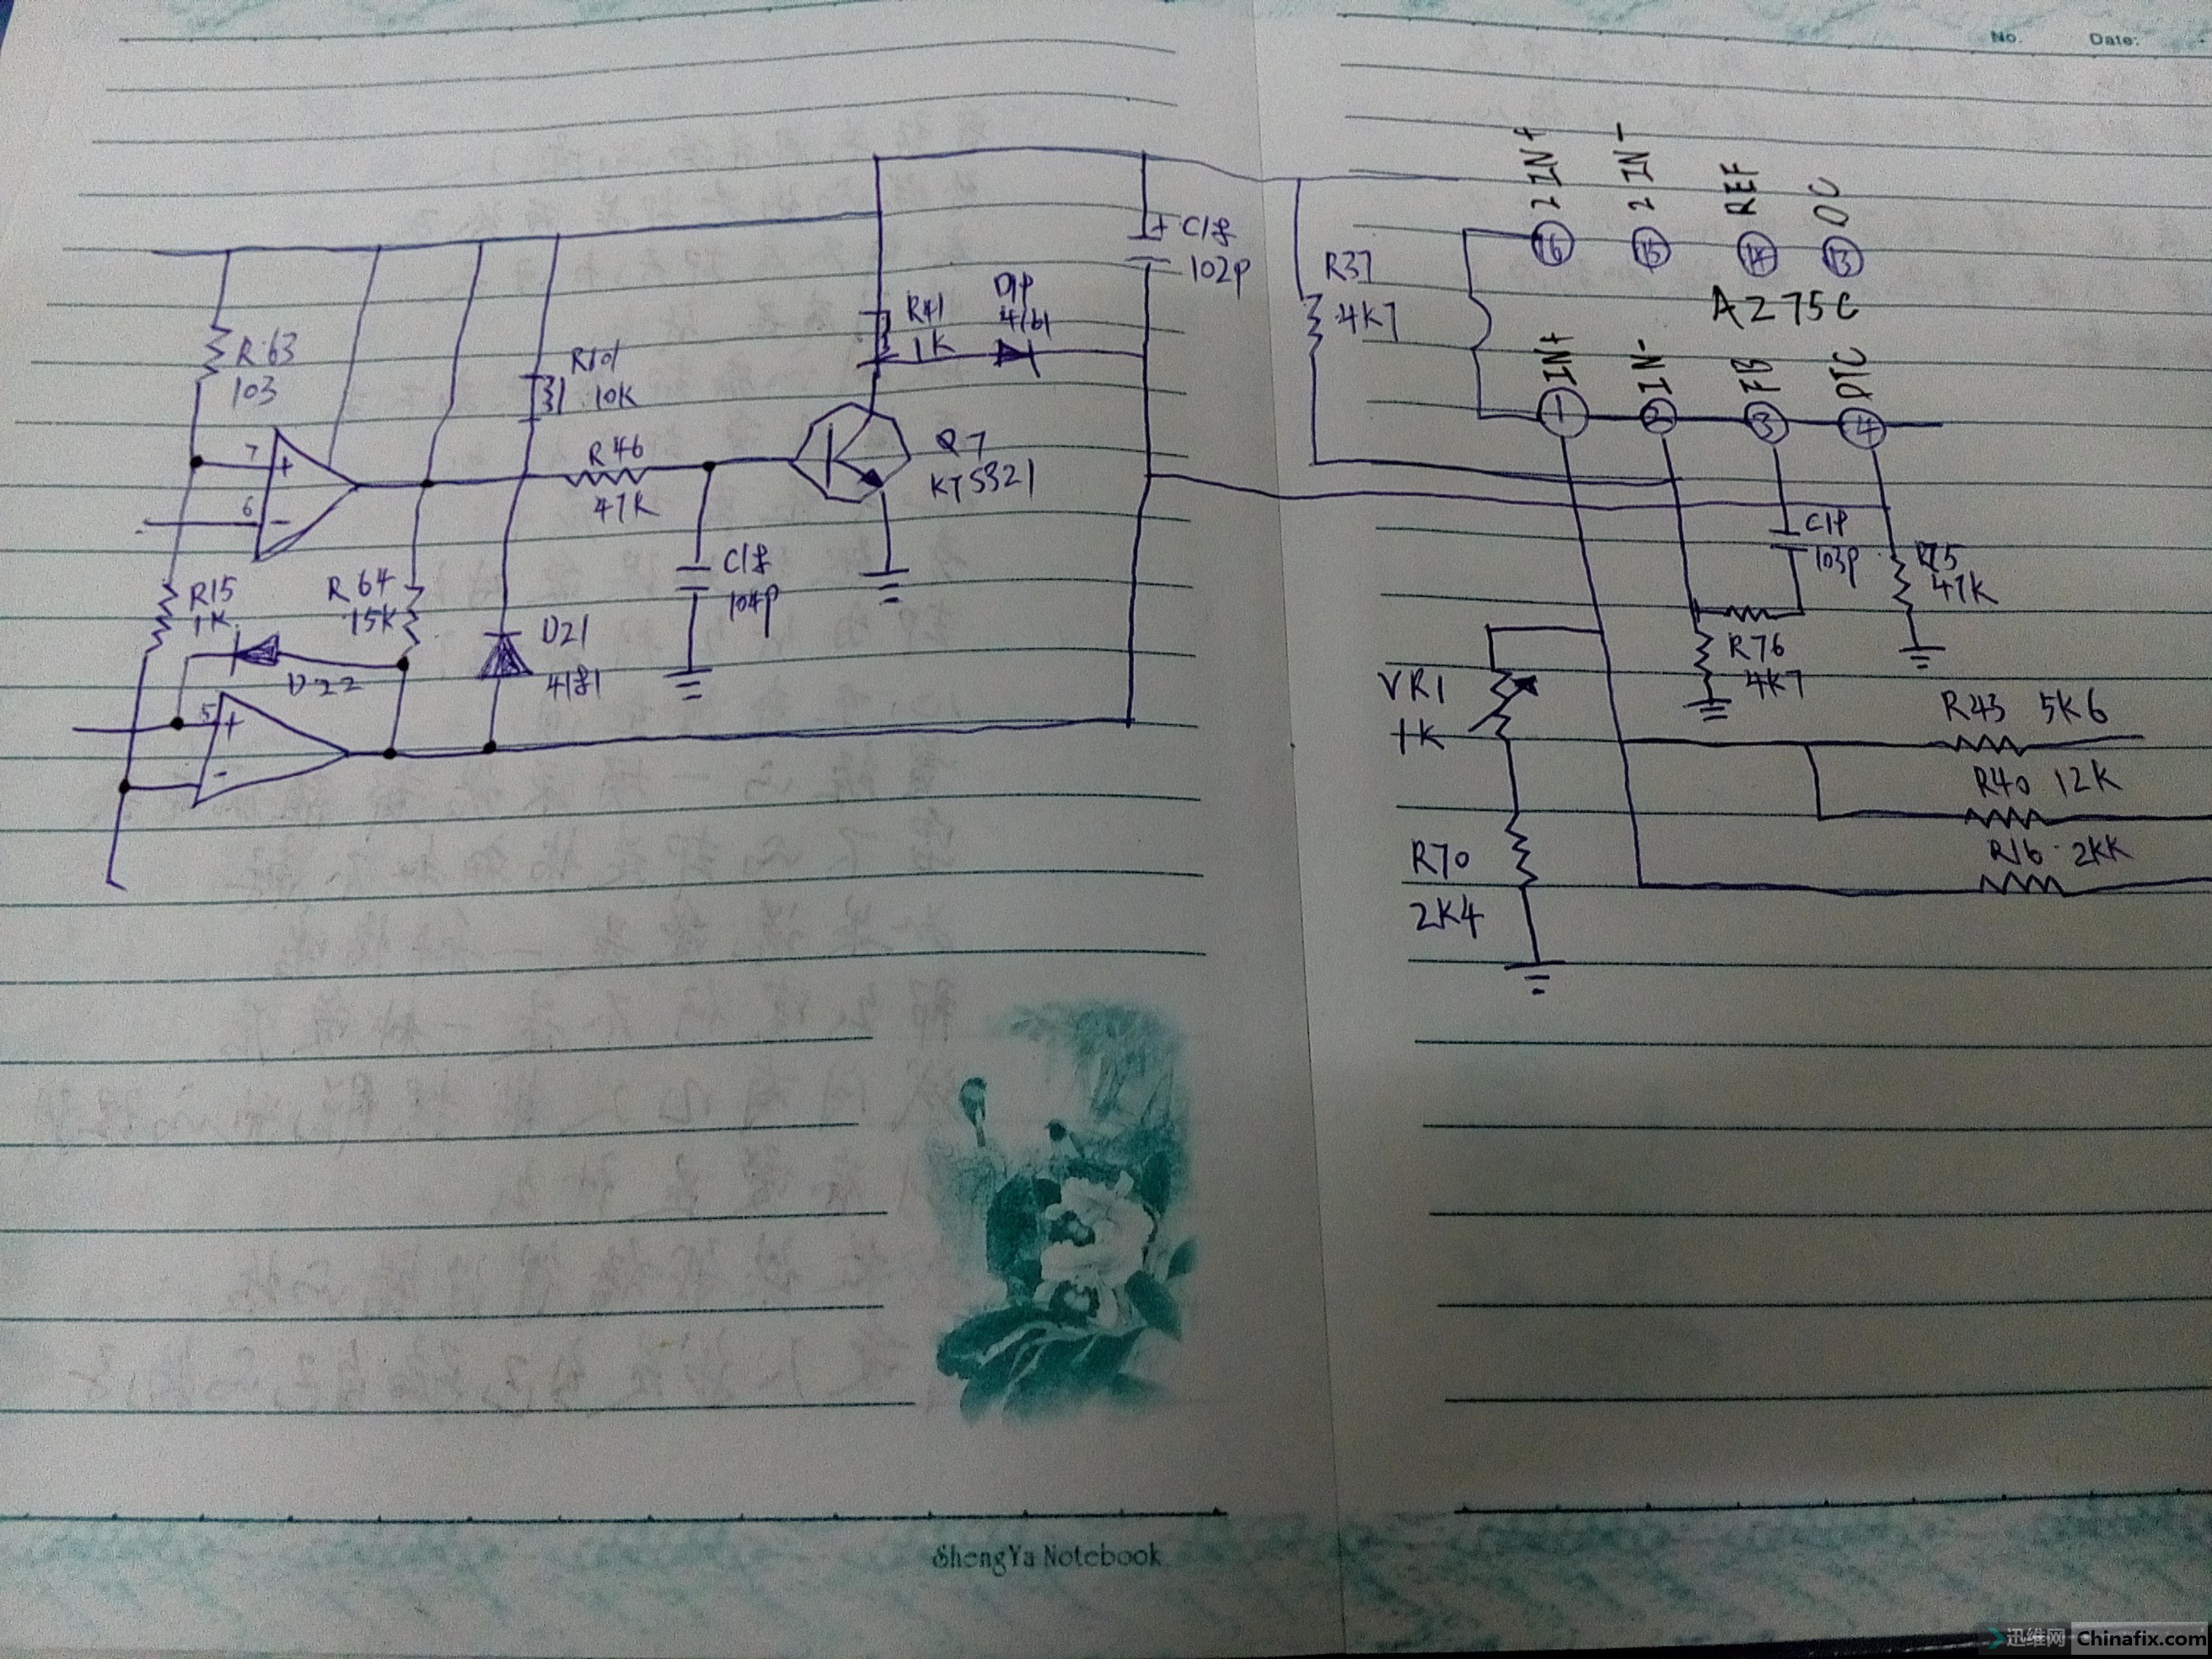 No.
Date:
2IN+
2IN-
REF
OC
16
15
14
13
AZ75C
IN+
IN-
FB
DTC
1
2
3
4
C18
102P
R37
4K7
R41
1K
D19
R63
103
R101
10K
7
+
6
-
R46
47K
Q7
C18
104P
C19
103P
R75
47K
R15
1K
R64
15K
D22
D21
4181
5
+
-
R76
4K7
VR1
1K
R43 5K6
R40 12K
R16 2KK
R70
2K4
ShengYa Notebook
迅维网 Chinafix.com